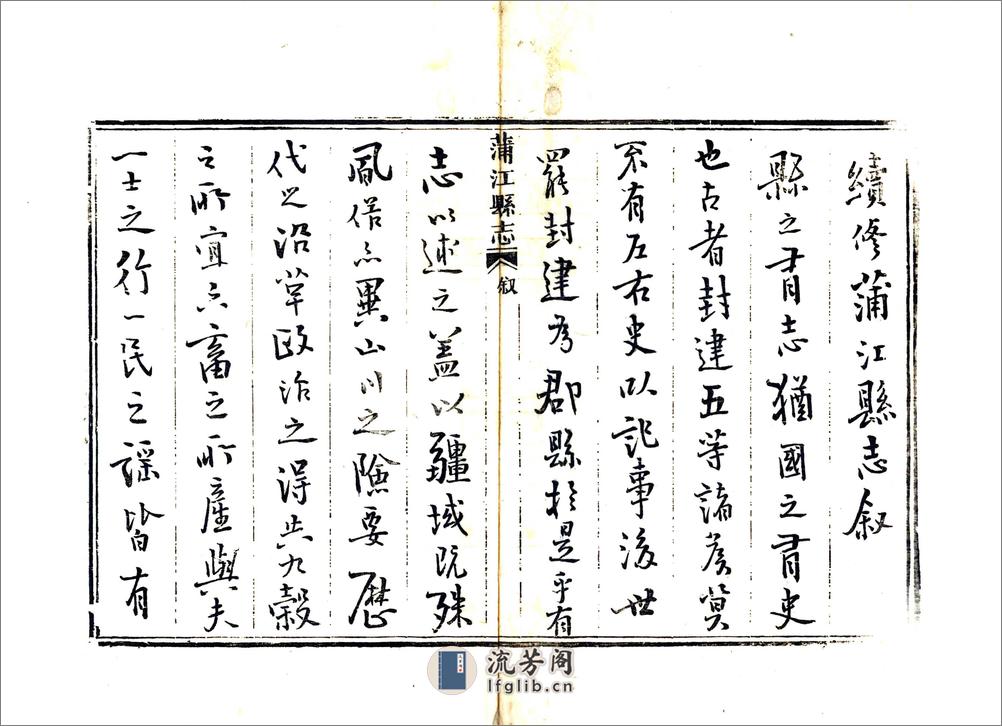 續修蒲江縣志叙
縣之有志猶國之有史
也古者封建五等諸侯莫
不有左右史以記事後世
罷封建为郡縣於是乎有
蒲江縣志 叙
志以述之蓋以疆域既殊
風俗亦異山川之險要歷
代之沿革政治之得失九穀
之所宜六畜之所產與夫
一士之行一民之謠皆有
流芳阁
lfglib.cn